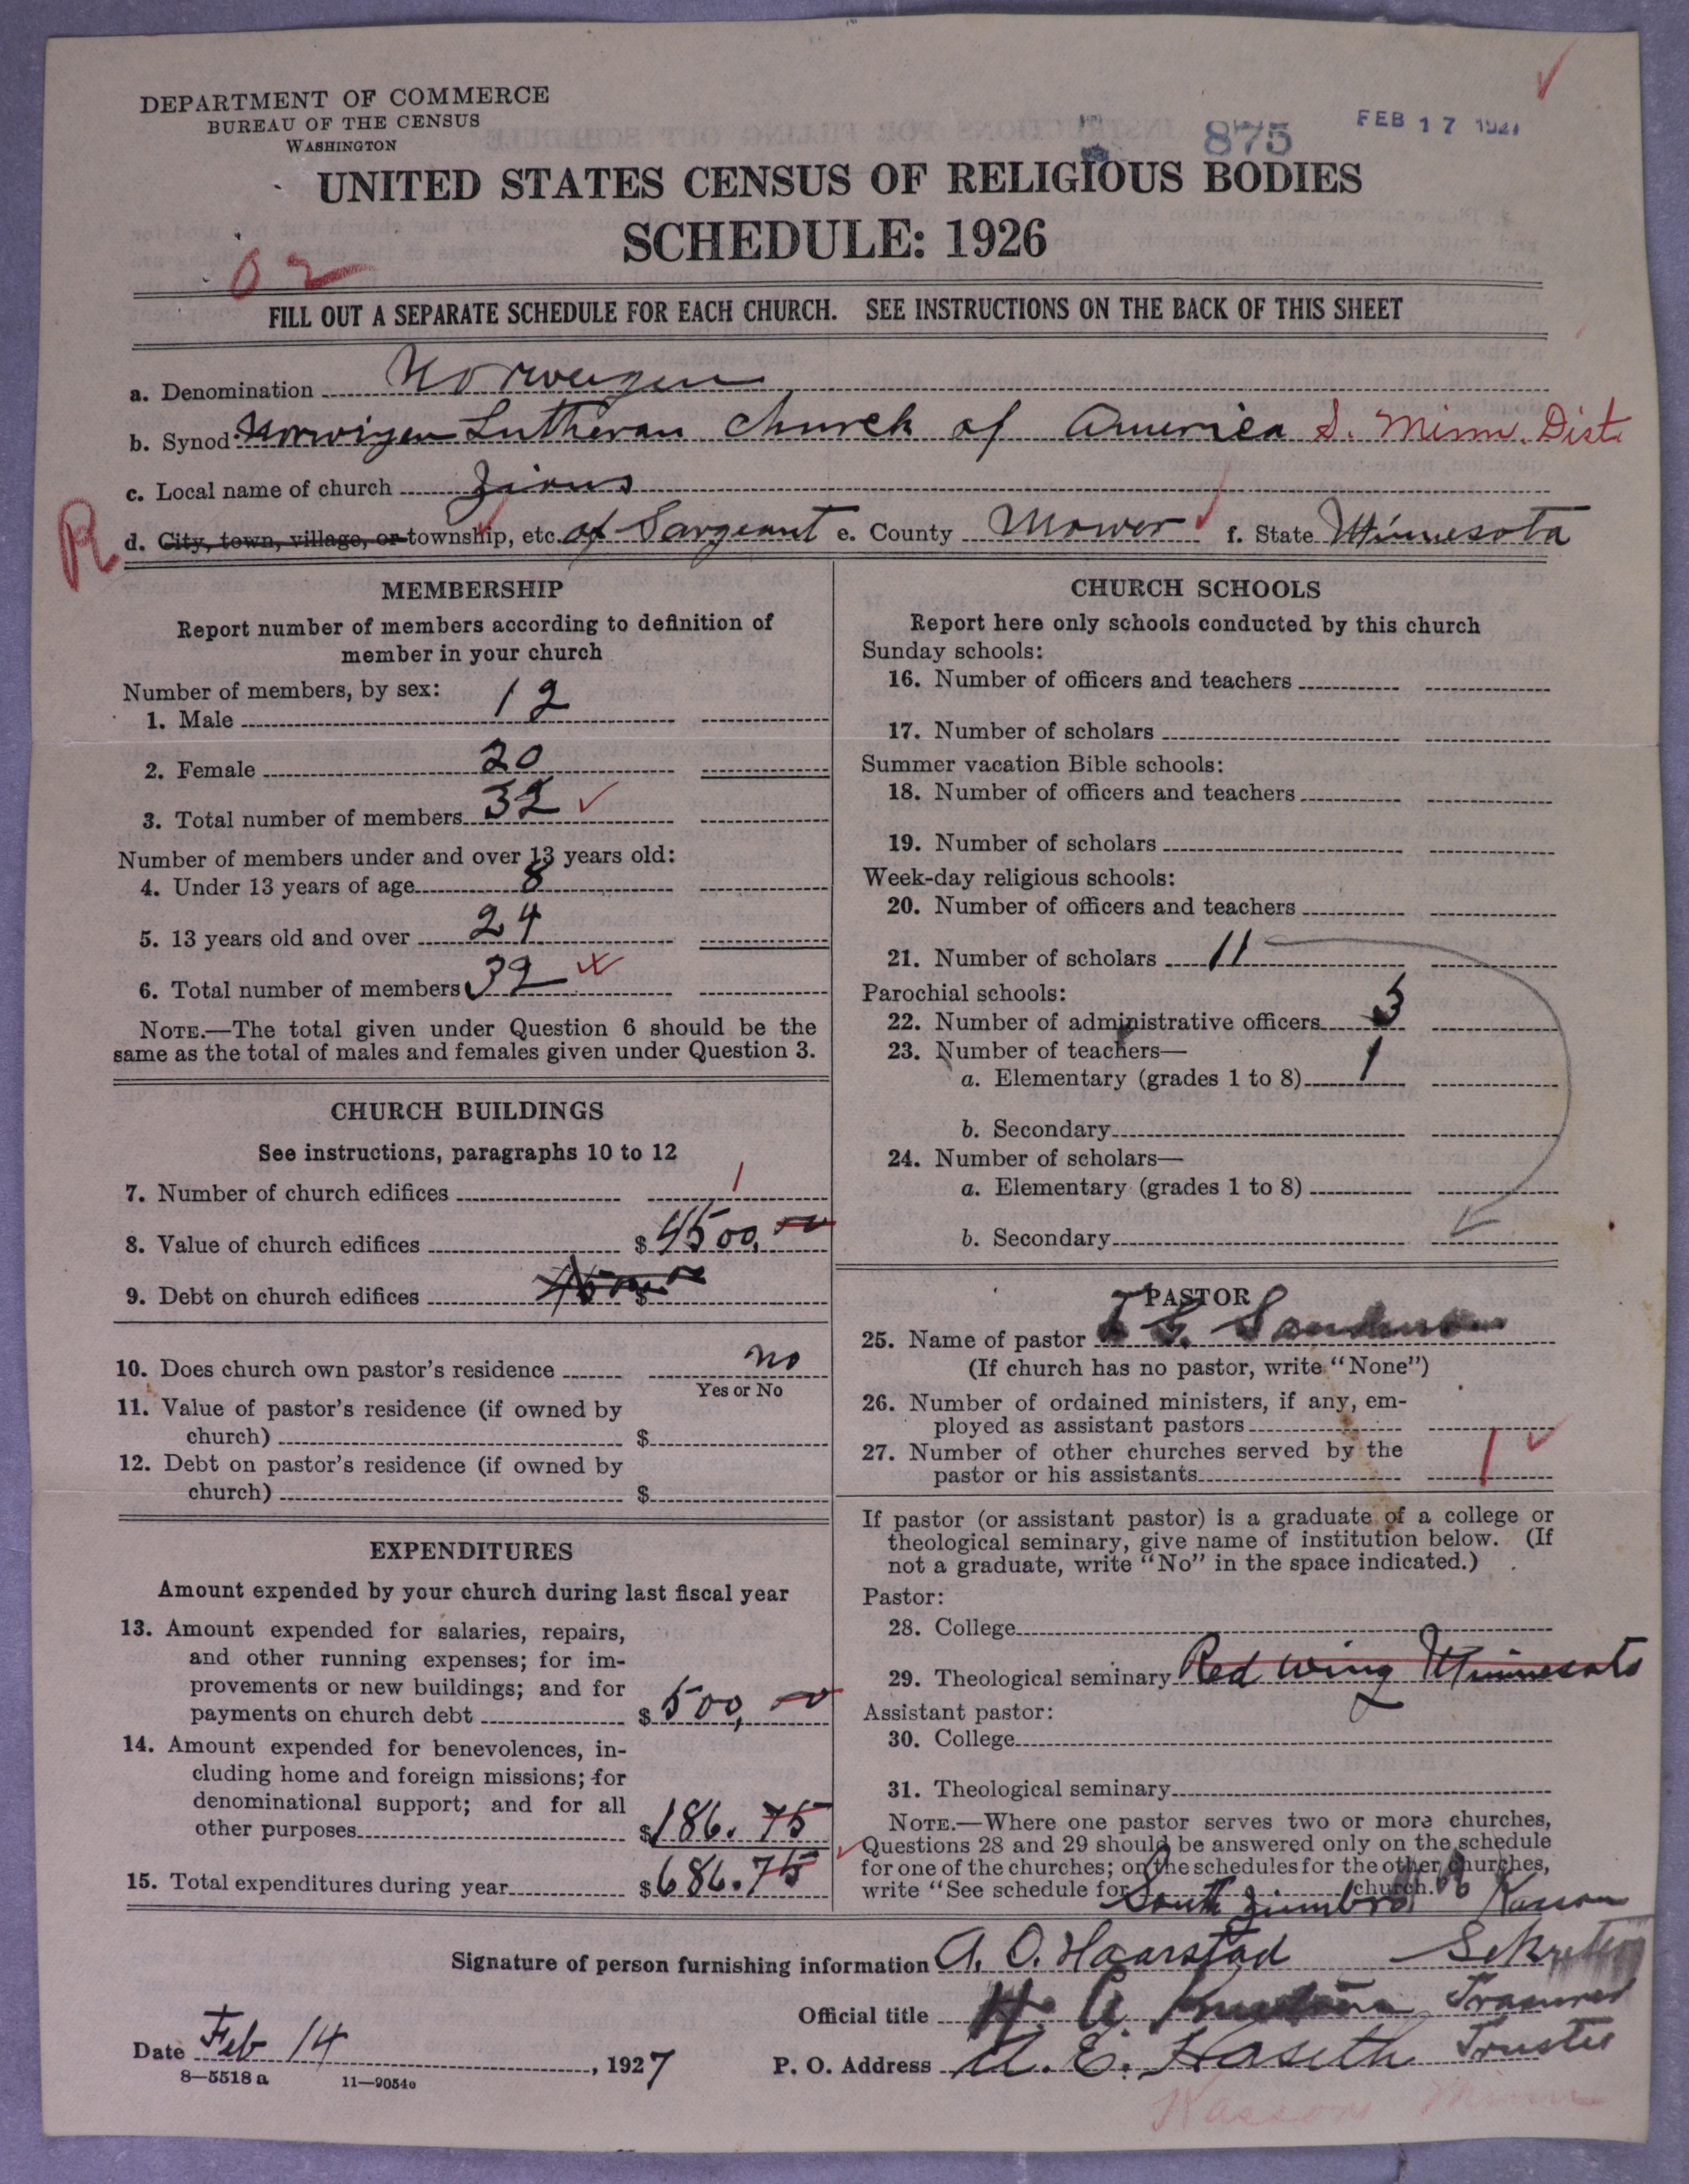 DEPARTMENT OF COMMERCE
BUREAU OF THE CENSUS
WASHINGTON
875
FEB 17 1927
UNITED STATES CENSUS OF RELIGIOUS BODIES
SCHEDULE: 1926
02
FILL OUT A SEPARATE SCHEDULE FOR EACH CHURCH. SEE INSTRUCTIONS ON THE BACK OF THIS SHEET
a. Denomination Norweigen
b. Synod Norwigen Lutheran Church of America S. Minn. Dist.
c. Local name of church Zions
R
d. City, town, village, or township, etc. of Sargeant e. County Mower f. State Minnesota
MEMBERSHIP
Report number of members according to definition of
member in your church
Number of members, by sex:
1. Male 12
2. Female 20
3. Total number of members 32
Number of members under and over 13 years old:
4. Under 13 years of age 8
5. 13 years old and over 24
6. Total number of members 32
NOTE.—The total given under Question 6 should be the
same as the total of males and females given under Question 3.
CHURCH BUILDINGS
See instructions, paragraphs 10 to 12
7. Number of church edifices 1
8. Value of church edifices $ 4500,
9. Debt on church edifices None $
10. Does church own pastor's residence no
Yes or No
11. Value of pastor's residence (if owned by
church) $
12. Debt on pastor's residence (if owned by
church) $
EXPENDITURES
Amount expended by your church during last fiscal year
13. Amount expended for salaries, repairs,
and other running expenses; for im-
provements or new buildings; and for
payments on church debt $ 500,
14. Amount expended for benevolences, in-
cluding home and foreign missions; for
denominational support; and for all
other purposes $ 186.75
15. Total expenditures during year $ 686.75
CHURCH SCHOOLS
Report here only schools conducted by this church
Sunday schools:
16. Number of officers and teachers
17. Number of scholars
Summer vacation Bible schools:
18. Number of officers and teachers
19. Number of scholars
Week-day religious schools:
20. Number of officers and teachers
21. Number of scholars 11
Parochial schools:
22. Number of administrative officers 3
23. Number of teachers—
a. Elementary (grades 1 to 8) 1
b. Secondary
24. Number of scholars—
a. Elementary (grades 1 to 8)
b. Secondary
PASTOR
25. Name of pastor
(If church has no pastor, write "None")
26. Number of ordained ministers, if any, em-
ployed as assistant pastors
27. Number of other churches served by the
pastor or his assistants 1
If pastor (or assistant pastor) is a graduate of a college or
theological seminary, give name of institution below. (If
not a graduate, write "No" in the space indicated.)
Pastor:
28. College
29. Theological seminary Red Wing Minnesota
Assistant pastor:
30. College
31. Theological seminary
NOTE.—Where one pastor serves two or more churches,
Questions 28 and 29 should be answered only on the schedule
for one of the churches; on the schedules for the other churches,
write "See schedule for South Zumbro church."
Signature of person furnishing information A. O. Haarstad
Official title H. A. Treasurer
Date Feb 14, 1927 P. O. Address A. E. Haseth Trustee
8—5518 a 11—9054
Kasson Minn